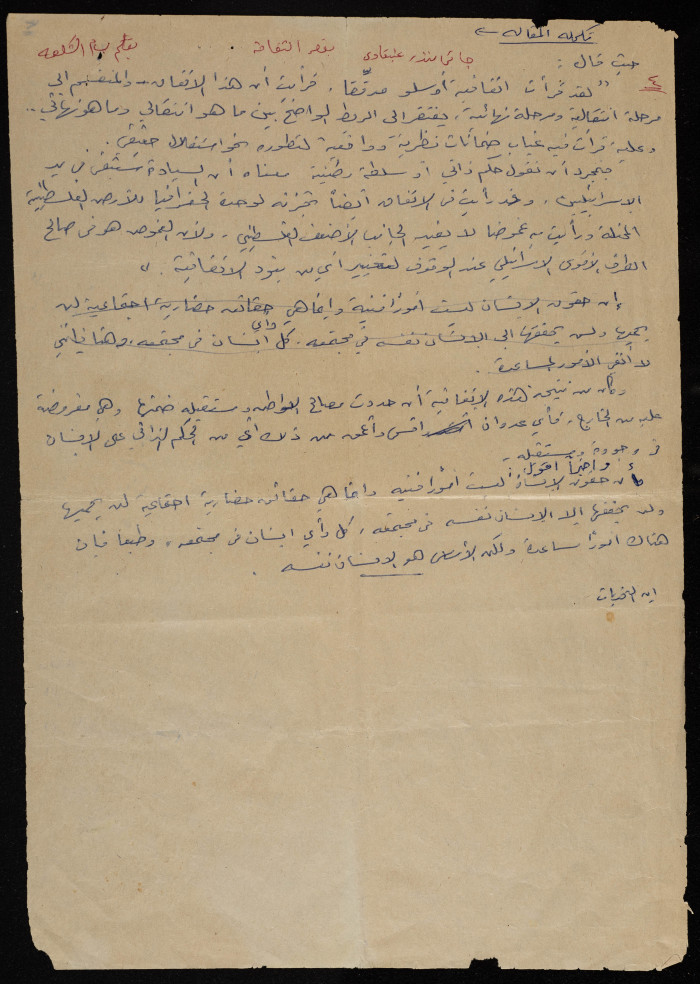 تكملة المقالة
بقلم
بقصر الثقافة
٤
حيث قال :
" لقد قرأت اتفاقية أوسلو مدققا، قرأت أن هذا الاتفاق .. والمنقسم إلى
مرحلة انتقالية ومرحلة نهائية، يفتقر إلى الربط الواضح بين ما هو انتقالي وما هو نهائي ..
وعليه قرأت فيه غياب ضمانات نظرية وواقعية لتطوره نحو استقلال حقيقي .
بمجرد أن نقول حكم ذاتي أو سلطة وطنية معناه أن السيادة ستبقى في يد
الإسرائيليين، وقد رأيت في الاتفاق أيضاً تجزئة لوحدة الجغرافيا للأرض الفلسطينية
المحتلة ورأيت به غموضا لا يفيد الجانب الأضعف الفلسطيني، ولأن الغموض هو في صالح
الطرف الأقوى الإسرائيلي عند الوقوف لتفسير أي من بنود الاتفاقية . "
إن حقوق الإنسان ليست أمورا فنية وإنما هي حقائق حضارية اجتماعية لن
يحميها ولن يحققها إلا الإنسان نفسه في مجتمعه، كل إنسان وأي في مجتمعه، وهنا فإنني
لا أنفي الأمور المساعدة .
وكان من نتيجة هذه الاتفاقية أن حددت مصالح المواطن ومستقبله ضمنها وهي مفروضة
عليه من الخارج، فأي عدوان أقسى وأعمق من ذلك أي من الحكم الذاتي على الإنسان
في وجوده ومستقبله .
وأخيراً أقول:
إن حقوق الإنسان ليست أمورا فنية وإنما هي حقائق حضارية اجتماعية لن يحميها
ولن يحققها إلا الإنسان نفسه في مجتمعه، كل وأي إنسان في مجتمعه، وطبعا فإن
هناك أمورا مساعدة ولكن الأساس هو الإنسان نفسه .
إن التحديات